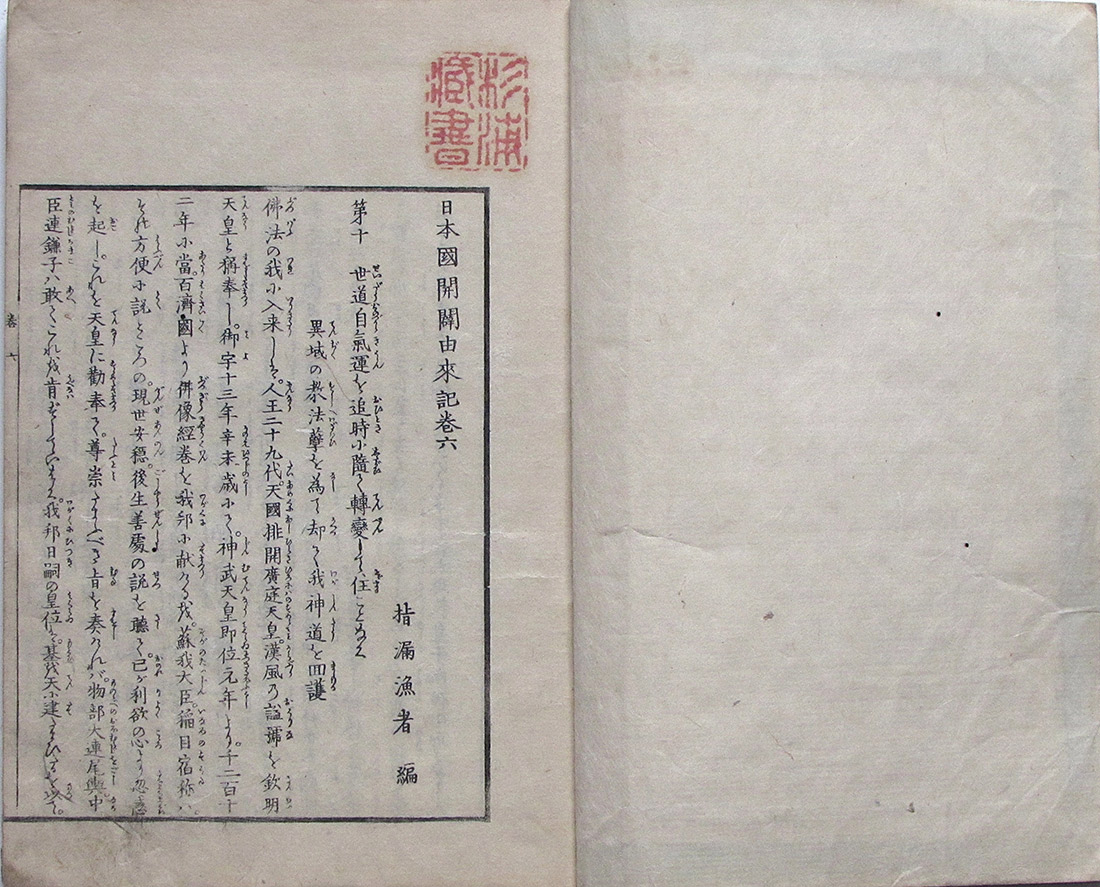 杉浦
藏書
日本國開闢由來記卷六
指漏漁者 編
第十 世道自氣運を追時小隨て轉變して住ことなく
異域の教法孽を為て却て我神道を回護
佛法の我小入来しは。人王二十九代。天國排開廣庭天皇。漢風の謚號を欽明
天皇と稱奉し。御宇十三年辛未歳小て。神武天皇即位元年より。千二百十
二年小當。百濟國より佛像經卷を我邦小献る。蘇我大臣稲目宿祢ハ。
それ方便小説ところの。現世安穏。後生善處の説を聽て。己が利欲の心より忽
を起し。これを天皇に勸奉て。尊崇たまふべき旨を奏けれバ。物部大連尾輿中
臣連鎌子ハ敢てこれを肯ぜずしていはく。我邦日嗣の皇位ハ。基を天小建たまひ
卷六